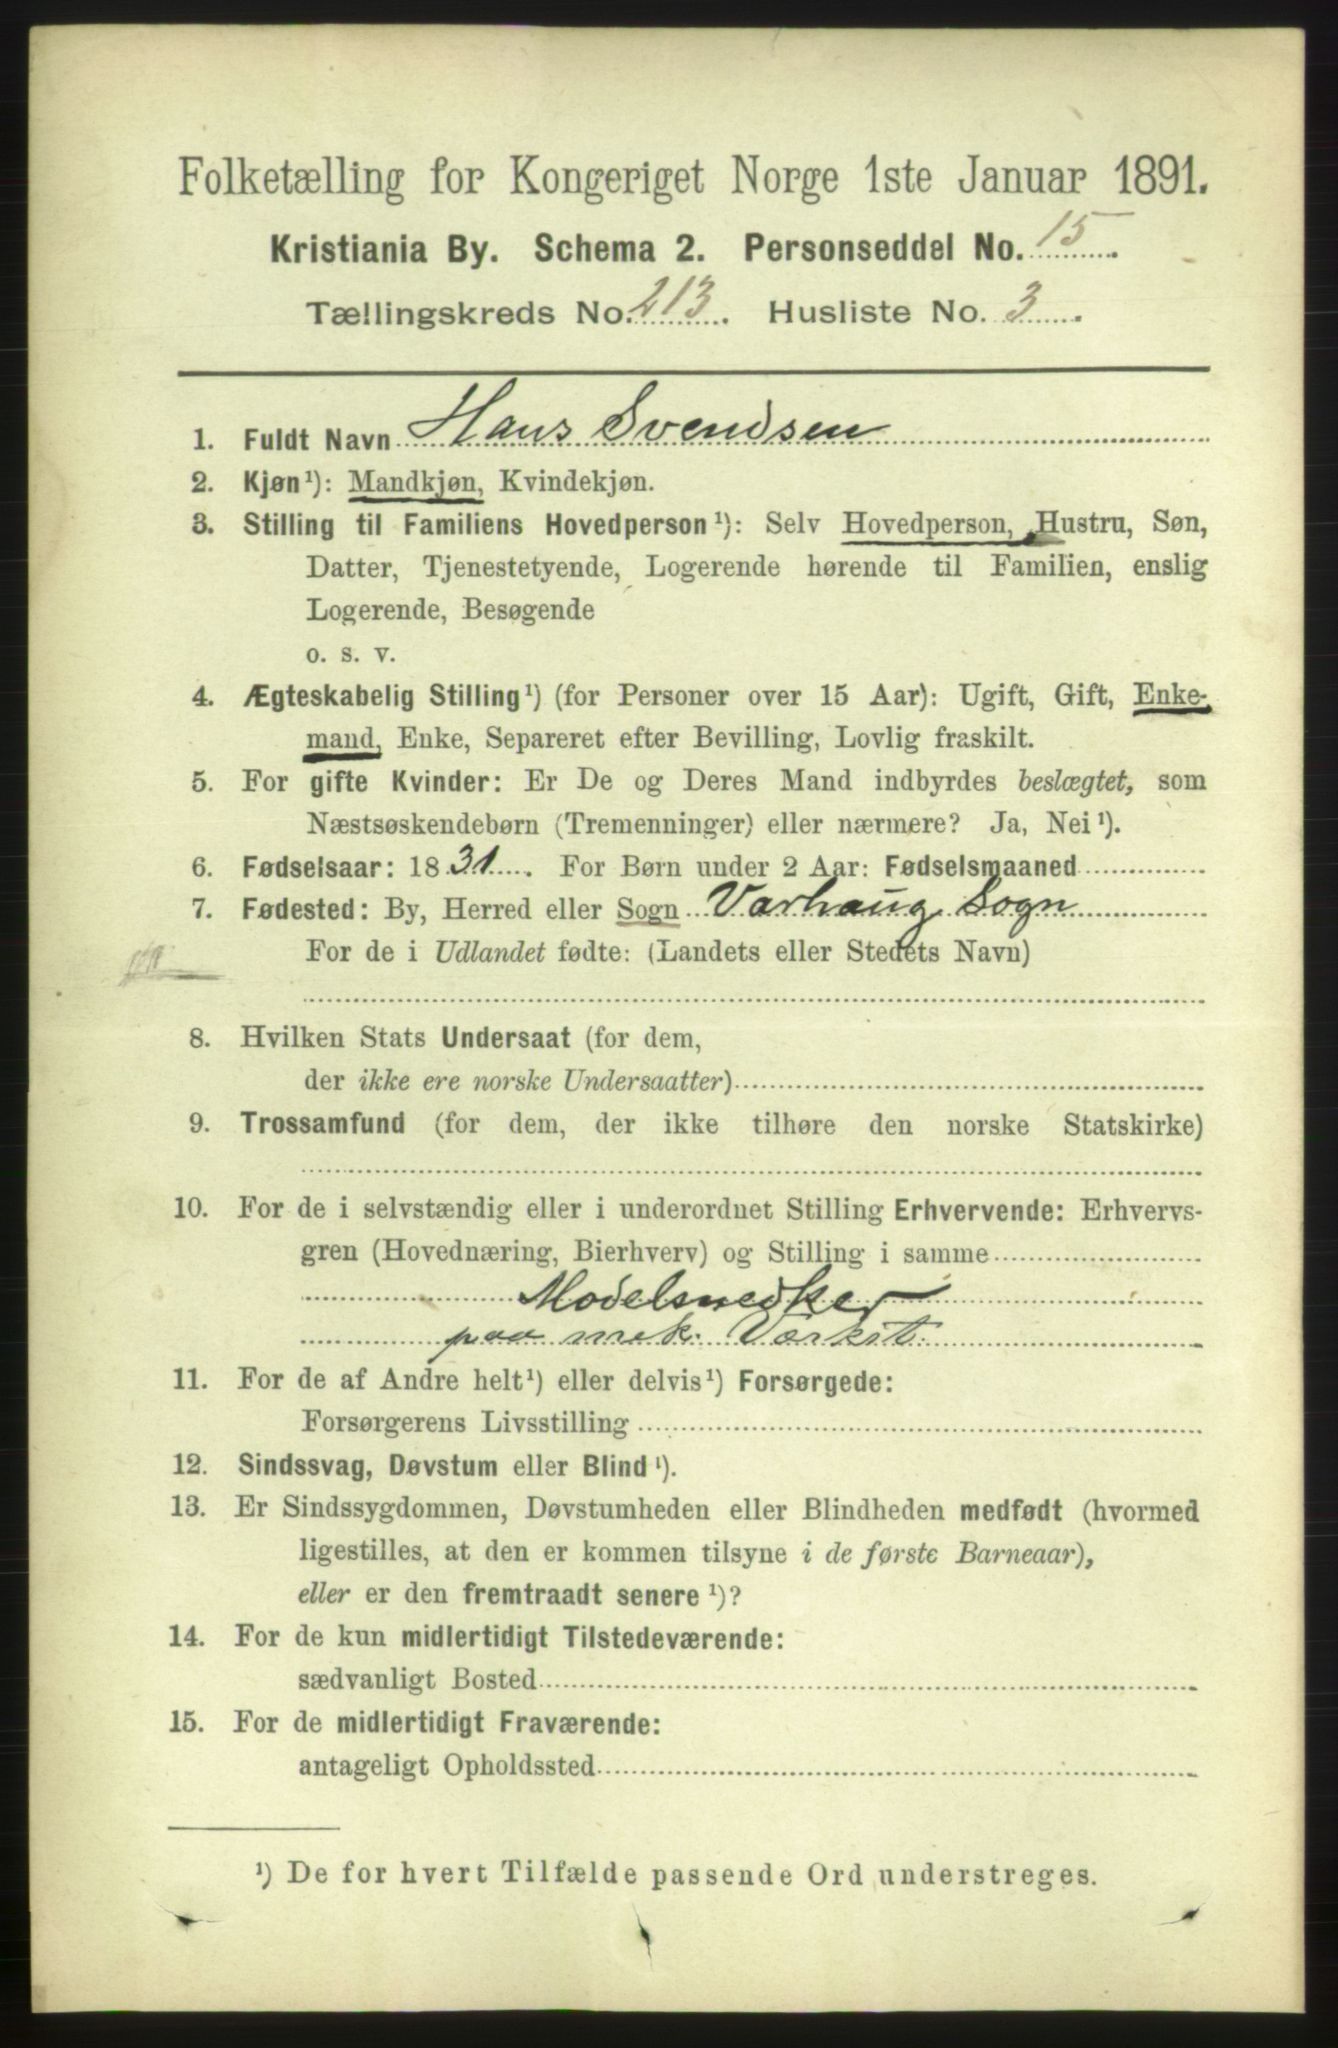 Folketælling for Kongeriget Norge 1ste Januar 1891.
Kristiania By. Schema 2. Personseddel No. 15
Tællingskreds No. 213. Husliste No. 3.
1. Fuldt Navn Hans Svendsen
2. Kjøn¹): Mandkjøn, Kvindekjøn.
3. Stilling til Familiens Hovedperson¹): Selv Hovedperson, Hustru, Søn,
Datter, Tjenestetyende, Logerende hørende til Familien, enslig
Logerende, Besøgende
o. s. v.
4. Ægteskabelig Stilling¹) (for Personer over 15 Aar): Ugift, Gift, Enke-
mand, Enke, Separeret efter Bevilling, Lovlig fraskilt.
5. For gifte Kvinder: Er De og Deres Mand indbyrdes beslægtet, som
Næstsøskendebørn (Tremenninger) eller nærmere? Ja, Nei¹).
6. Fødselsaar: 1831. For Børn under 2 Aar: Fødselsmaaned
7. Fødested: By, Herred eller Sogn Varhaug Sogn
For de i Udlandet fødte: (Landets eller Stedets Navn)
8. Hvilken Stats Undersaat (for dem,
der ikke ere norske Undersaatter)
9. Trossamfund (for dem, der ikke tilhøre den norske Statskirke)
10. For de i selvstændig eller i underordnet Stilling Erhvervende: Erhvervs-
gren (Hovednæring, Bierhverv) og Stilling i samme
Modelsnedker
paa mek. Værkst.
11. For de af Andre helt¹) eller delvis¹) Forsørgede:
Forsørgerens Livsstilling
12. Sindssvag, Døvstum eller Blind¹).
13. Er Sindssygdommen, Døvstumheden eller Blindheden medfødt (hvormed
ligestilles, at den er kommen tilsyne i de første Barneaar),
eller er den fremtraadt senere¹)?
14. For de kun midlertidigt Tilstedeværende:
sædvanligt Bosted
15. For de midlertidigt Fraværende:
antageligt Opholdssted
¹) De for hvert Tilfælde passende Ord understreges.